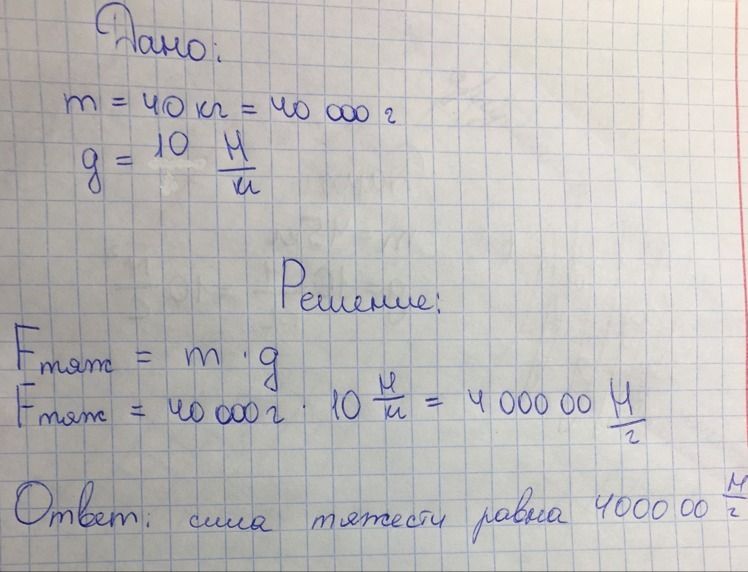 Дано:
m = 40 кг = 40 000 г
g = 10 Н/кг
Решение:
Fтяж = m · g
Fтяж = 40 000 г · 10 Н/кг = 4 000 00 Н/г
Ответ: сила тяжести равна 4000 00 Н/г